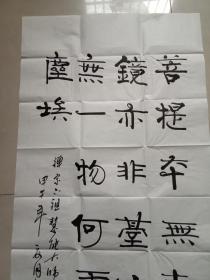 菩提夲無
鏡亦非臺
無一物何
塵埃
禪宗六祖慧能大師
甲午年